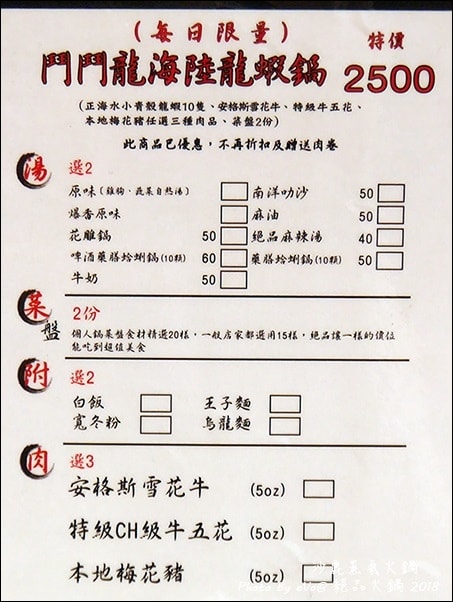 (每日限量)
鬥鬥龍海陸龍蝦鍋 特價 2500
(正海水小青殼龍蝦10隻、安格斯雪花牛、特級牛五花、
本地梅花豬任選三種肉品、菜盤2份)
此商品已優惠,不再折扣及贈送肉卷
湯 選2
原味(雞狗、蔬菜自熬湯) 南洋叻沙 50
爆香原味 麻油 50
花雕鍋 50 絕品麻辣湯 40
啤酒藥膳蛤蜊鍋(10顆) 60 藥膳蛤蜊鍋(10顆) 50
牛奶 50
菜盤 2份
個人鍋菜盤食材精選20樣,一般店家都選用15樣,絕品讓一樣的價位
能吃到超值美食
附 選2
白飯 王子麵
寬冬粉 烏龍麵
肉 選3
安格斯雪花牛 (5oz)
特級CH級牛五花 (5oz)
本地梅花豬 (5oz)
絕品火鍋 2018